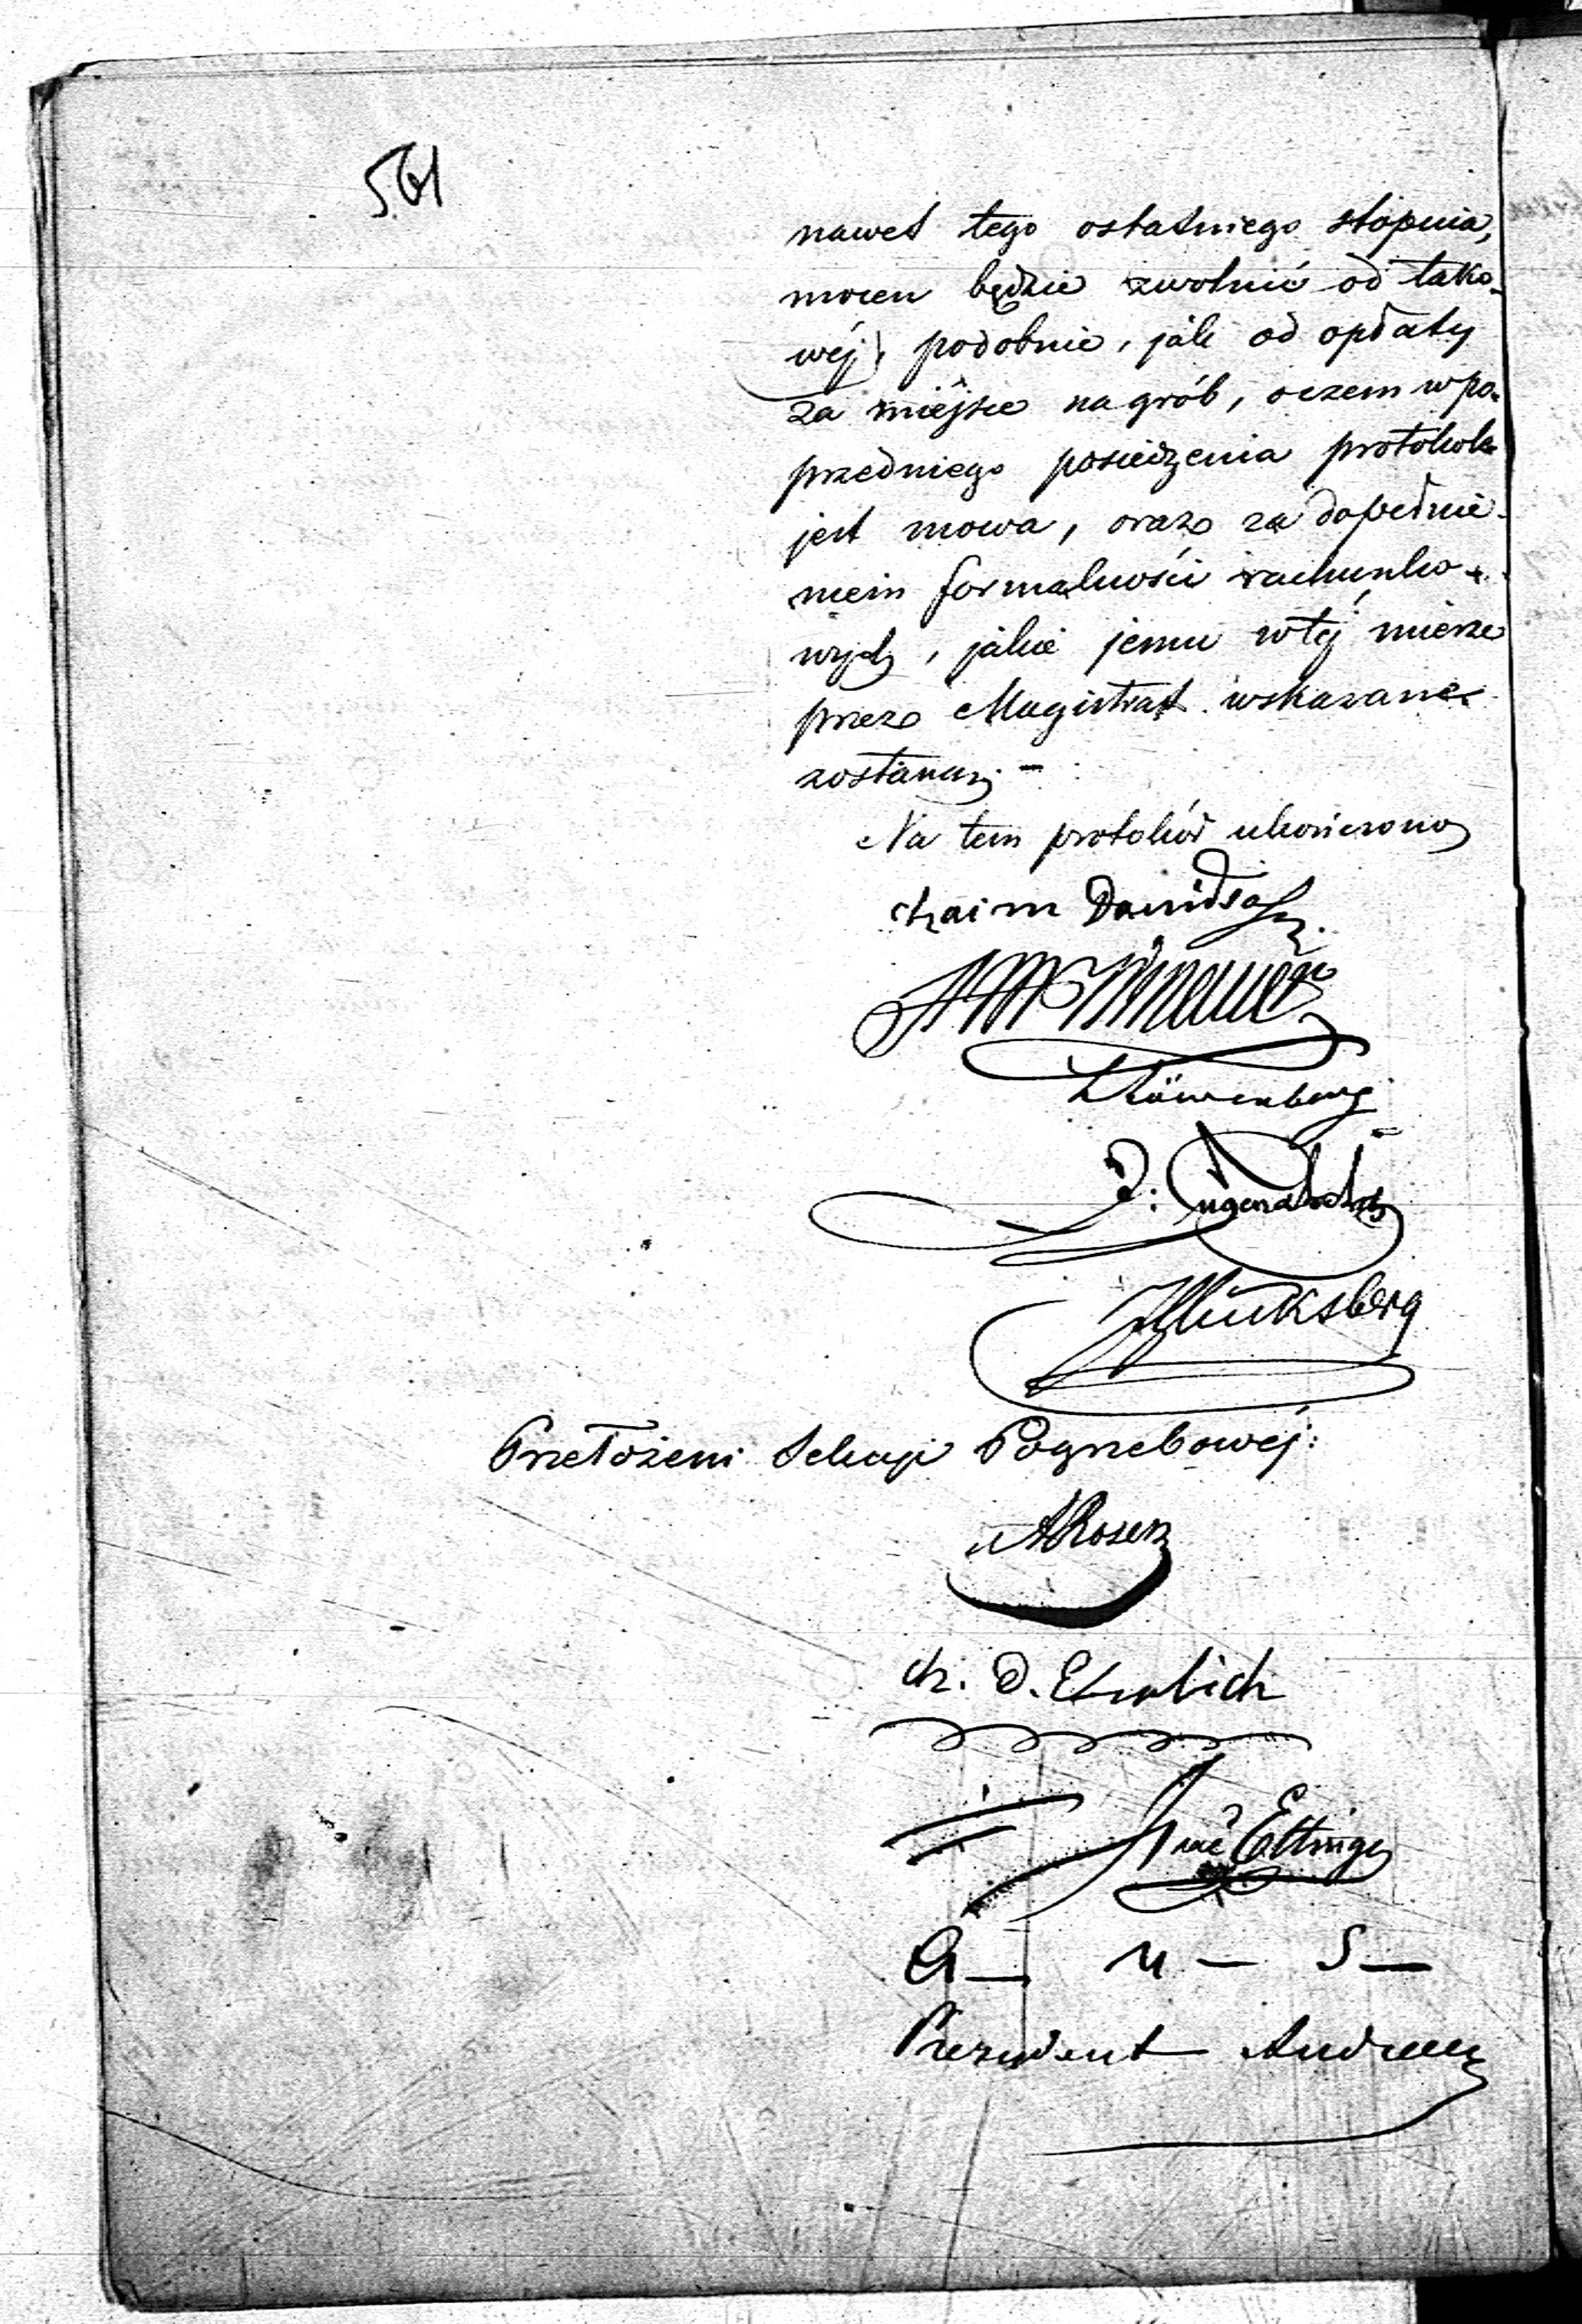 561
nawet tego ostatniego stopnia,
mocen będzie zwolnić od tako-
wéj, podobnie, jak od opłaty
za miéjsce na grób, o czem w po-
przedniego posiedzenia protokole
jest mowa, oraz za dopełnie-
niem formalności rachunko-
wych, jakie jemu w téj mierze
przez Magistrat wskazane
zostaną. -
Na tem protokół ukończono
Chaim Dawidsohn
Löwenberg
J. Jugendt
J Glücksberg
Przełożeni Sekcyi Pogrzebowéj:
A Rosen
Ch. D. Ehrlich
Ettinger
a — u — s —
Prezydent Andrault